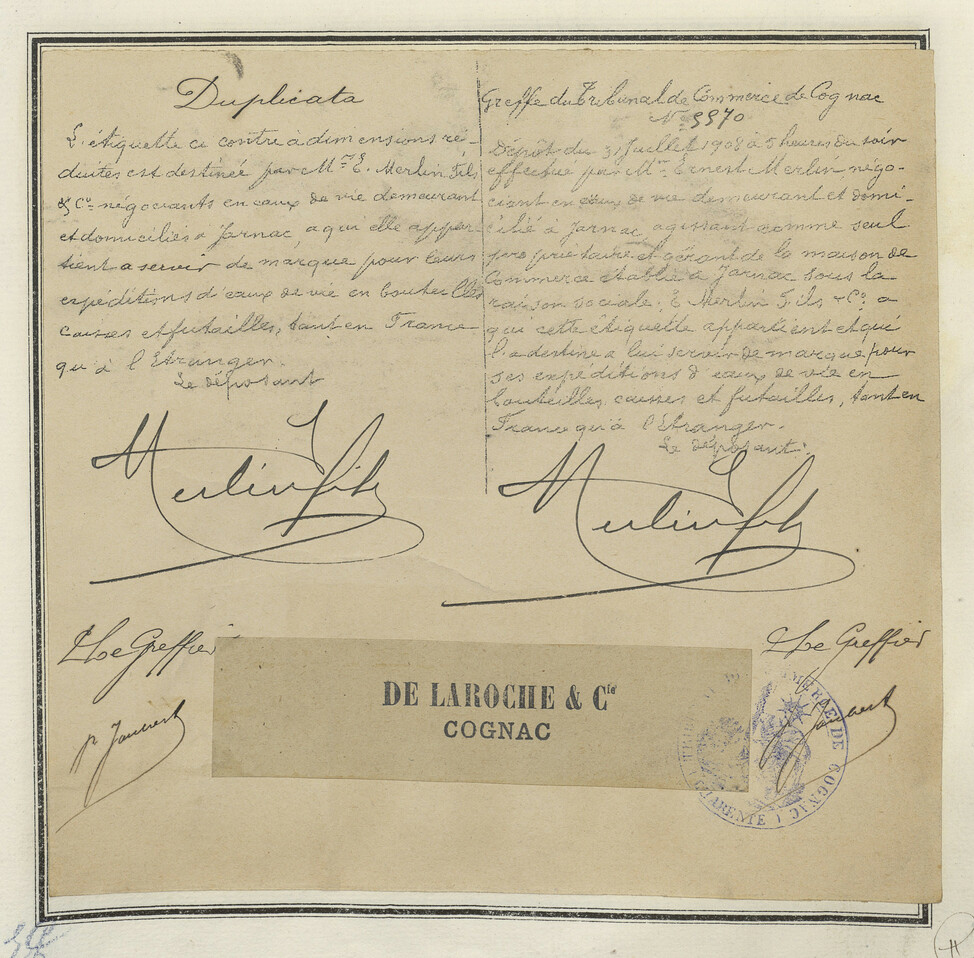 Duplicata
L'étiquette ci contre à dimensions ré-
duites est destinée par Mrs E. Merlin Fils
& Co. négociants en eaux de vie demeurant
et domiciliés à Jarnac, a qui elle appar-
tient a servir de marque pour leurs
expéditions d'eaux de vie en bouteilles
caisses et futailles, tant en France
qu'à l'Etranger
Le déposant
Merlin fils
P Le Greffier
Greffe du Tribunal de Commerce de Cognac
No 9970
Dépôt du 31 Juillet 1908 à 5 heures du soir
effectué par Mr. Ernest Merlin négo-
ciant en eaux de vie demeurant et domi-
cilié à Jarnac, agissant comme seul
propriétaire et gérant de la maison de
Commerce établie à Jarnac sous la
raison sociale; E Merlin Fils & Co. a
qui cette étiquette appartient et qui
l'a destine a lui servir de marque pour
ses expéditions d'eaux de vie en
bouteilles, caisses et futailles, tant en
France qu'à l'Etranger.
Le déposant:
Merlin fils
P Le Greffier
DE LAROCHE & Cie
COGNAC
DE COGNAC